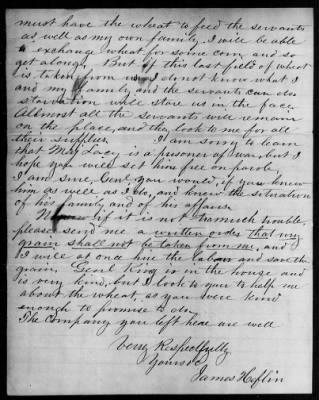 must have the wheat to feed the servants
as well as my own family. I will be able
to exchange wheat for some corn and so
get along. But if this last field of wheat
is taken from us I do not know what I
and my family and the servants can do.
starvation will stare us in the face.
Allmost all the servants will remain
on the place, and they look to me for all
their supplies. I am sorry to learn
that Maj Lacy is a prisoner of war, but I
hope you will set him free on parole.
I am sure, Genl you would, if you knew
him as well as I do, and knew the situation
of his family and of his affairs.
Now if it is not too much trouble,
please send me a written order that my
grain shall not be taken from me, and
I will at once hire the labour and save the
grain. Genl King is in the house and
is very kind, but I look to you to help me
about the wheat, as you were kind
enough to promise to do.
The company you left here are well
Very Respectfully
Yours &c
James Heflin